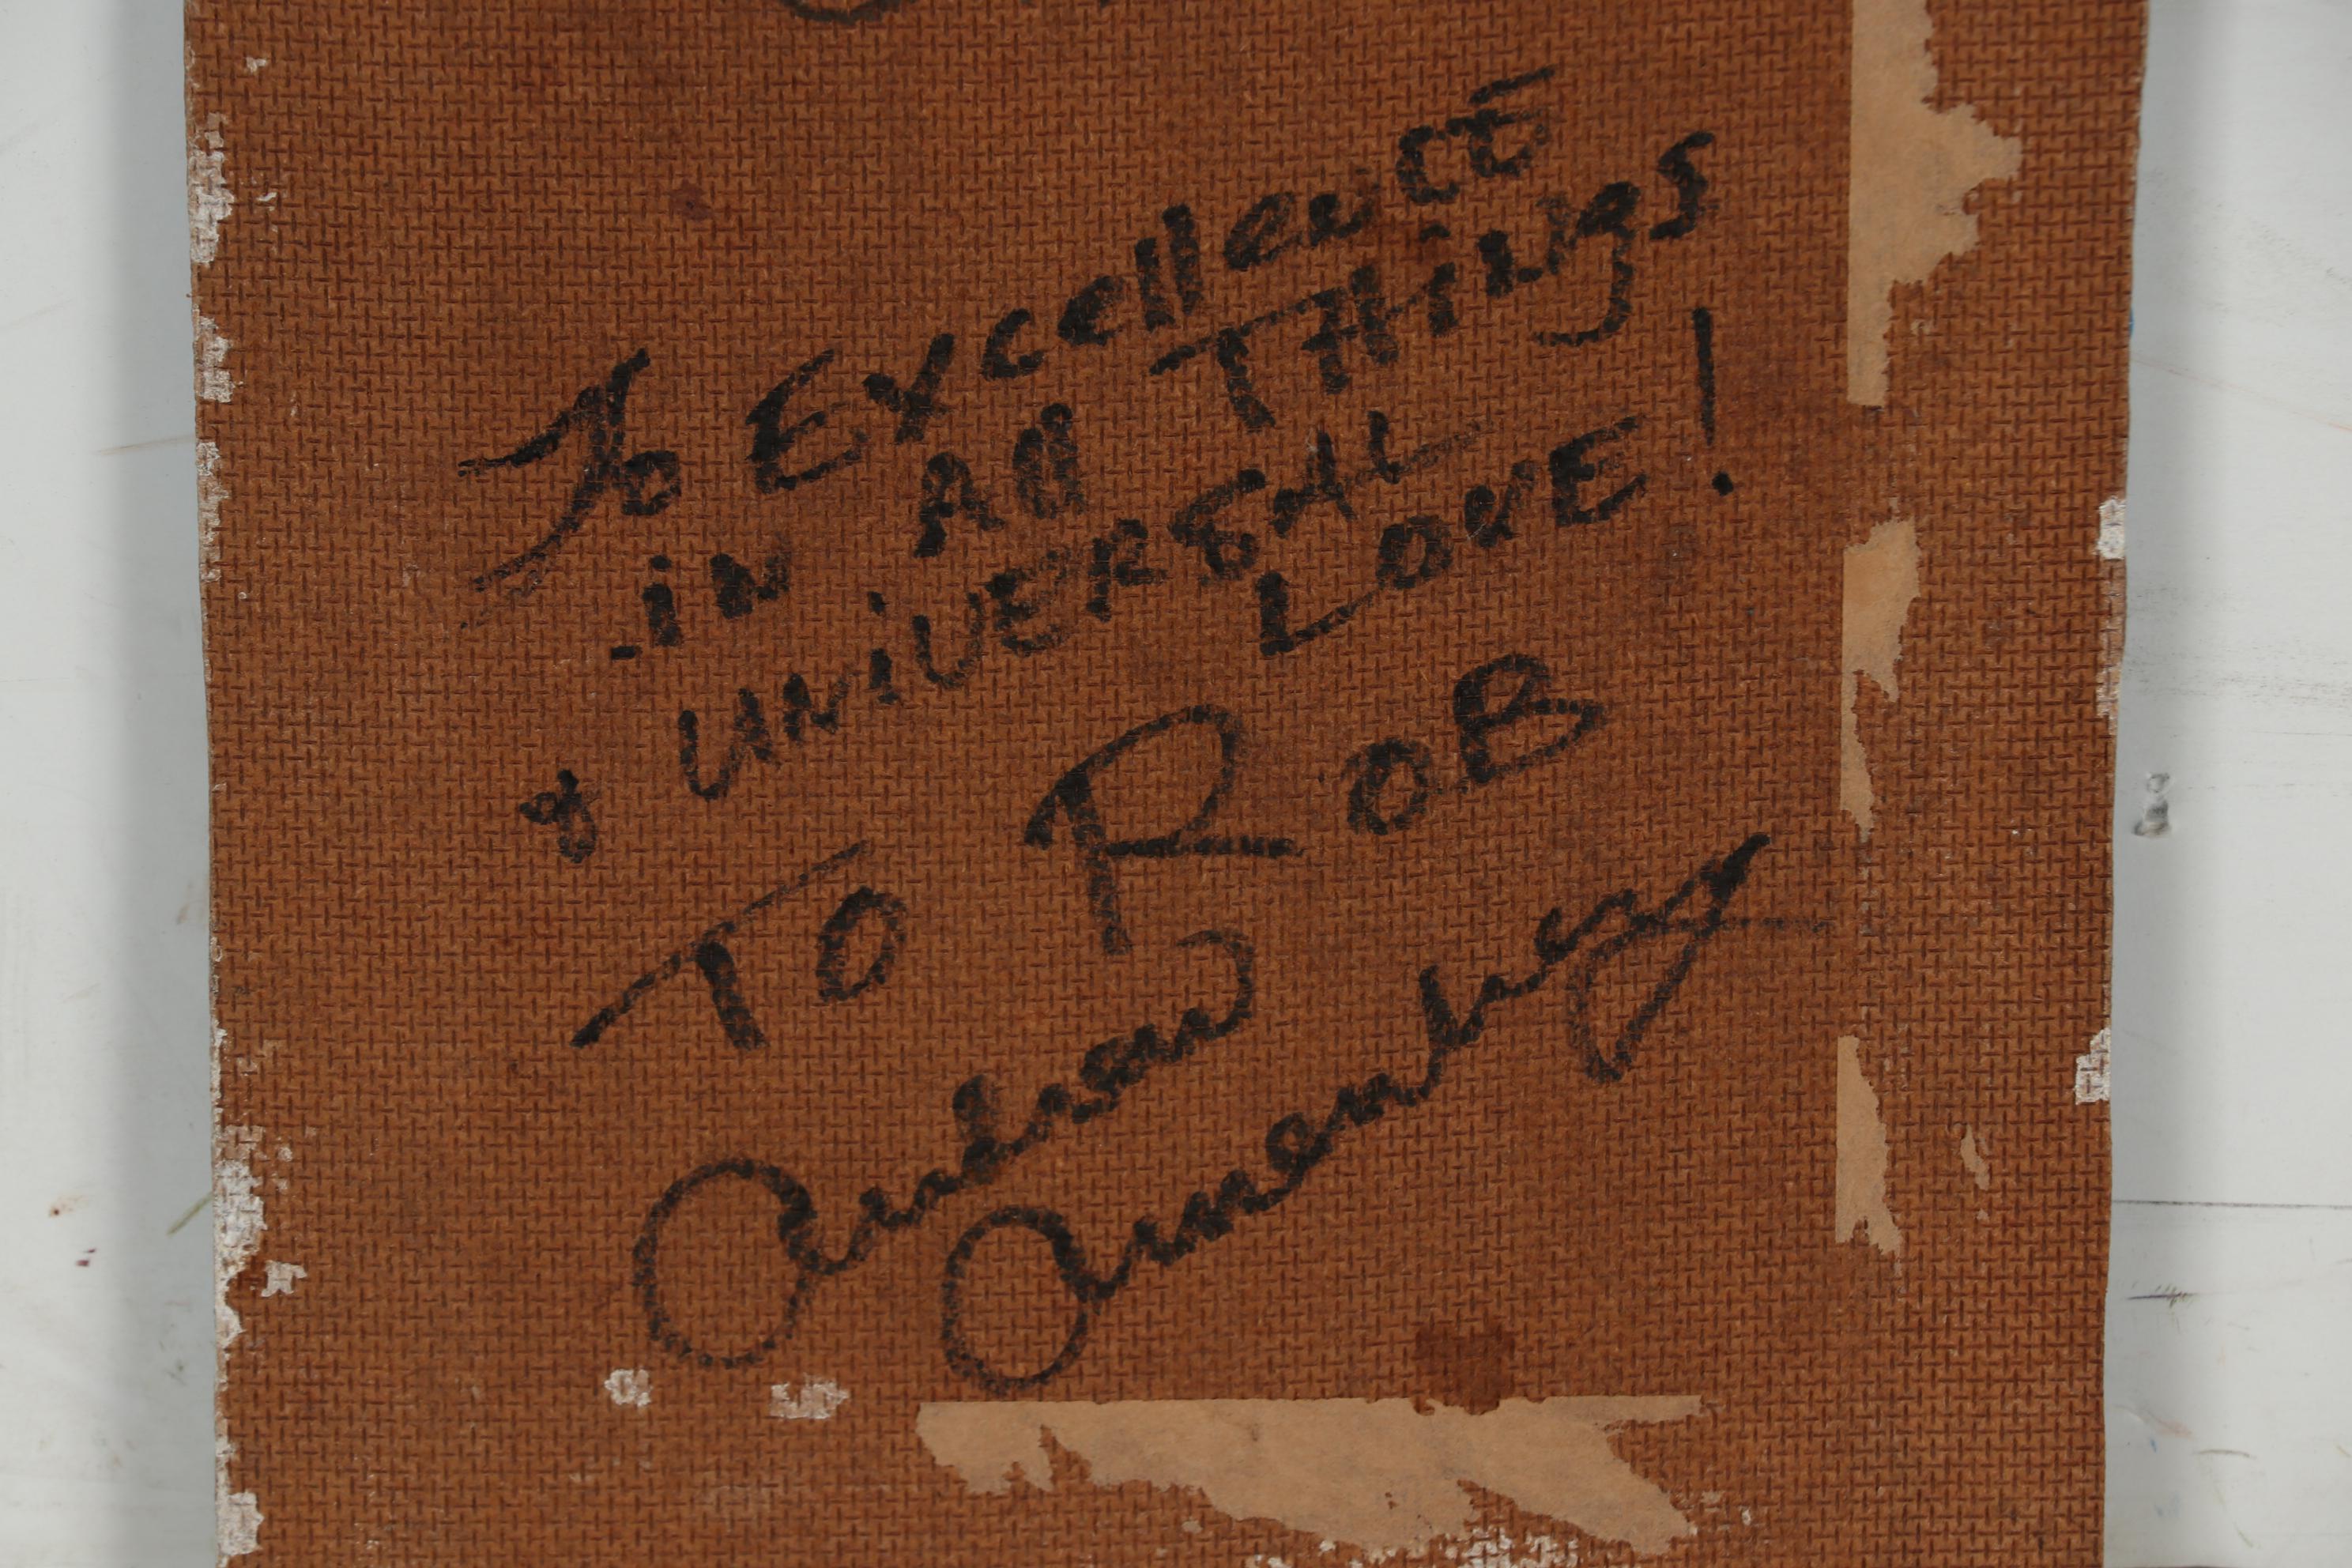 To Excellence
in All Things
& UNiVERSAL LOVE!
TO ROB
Andrew